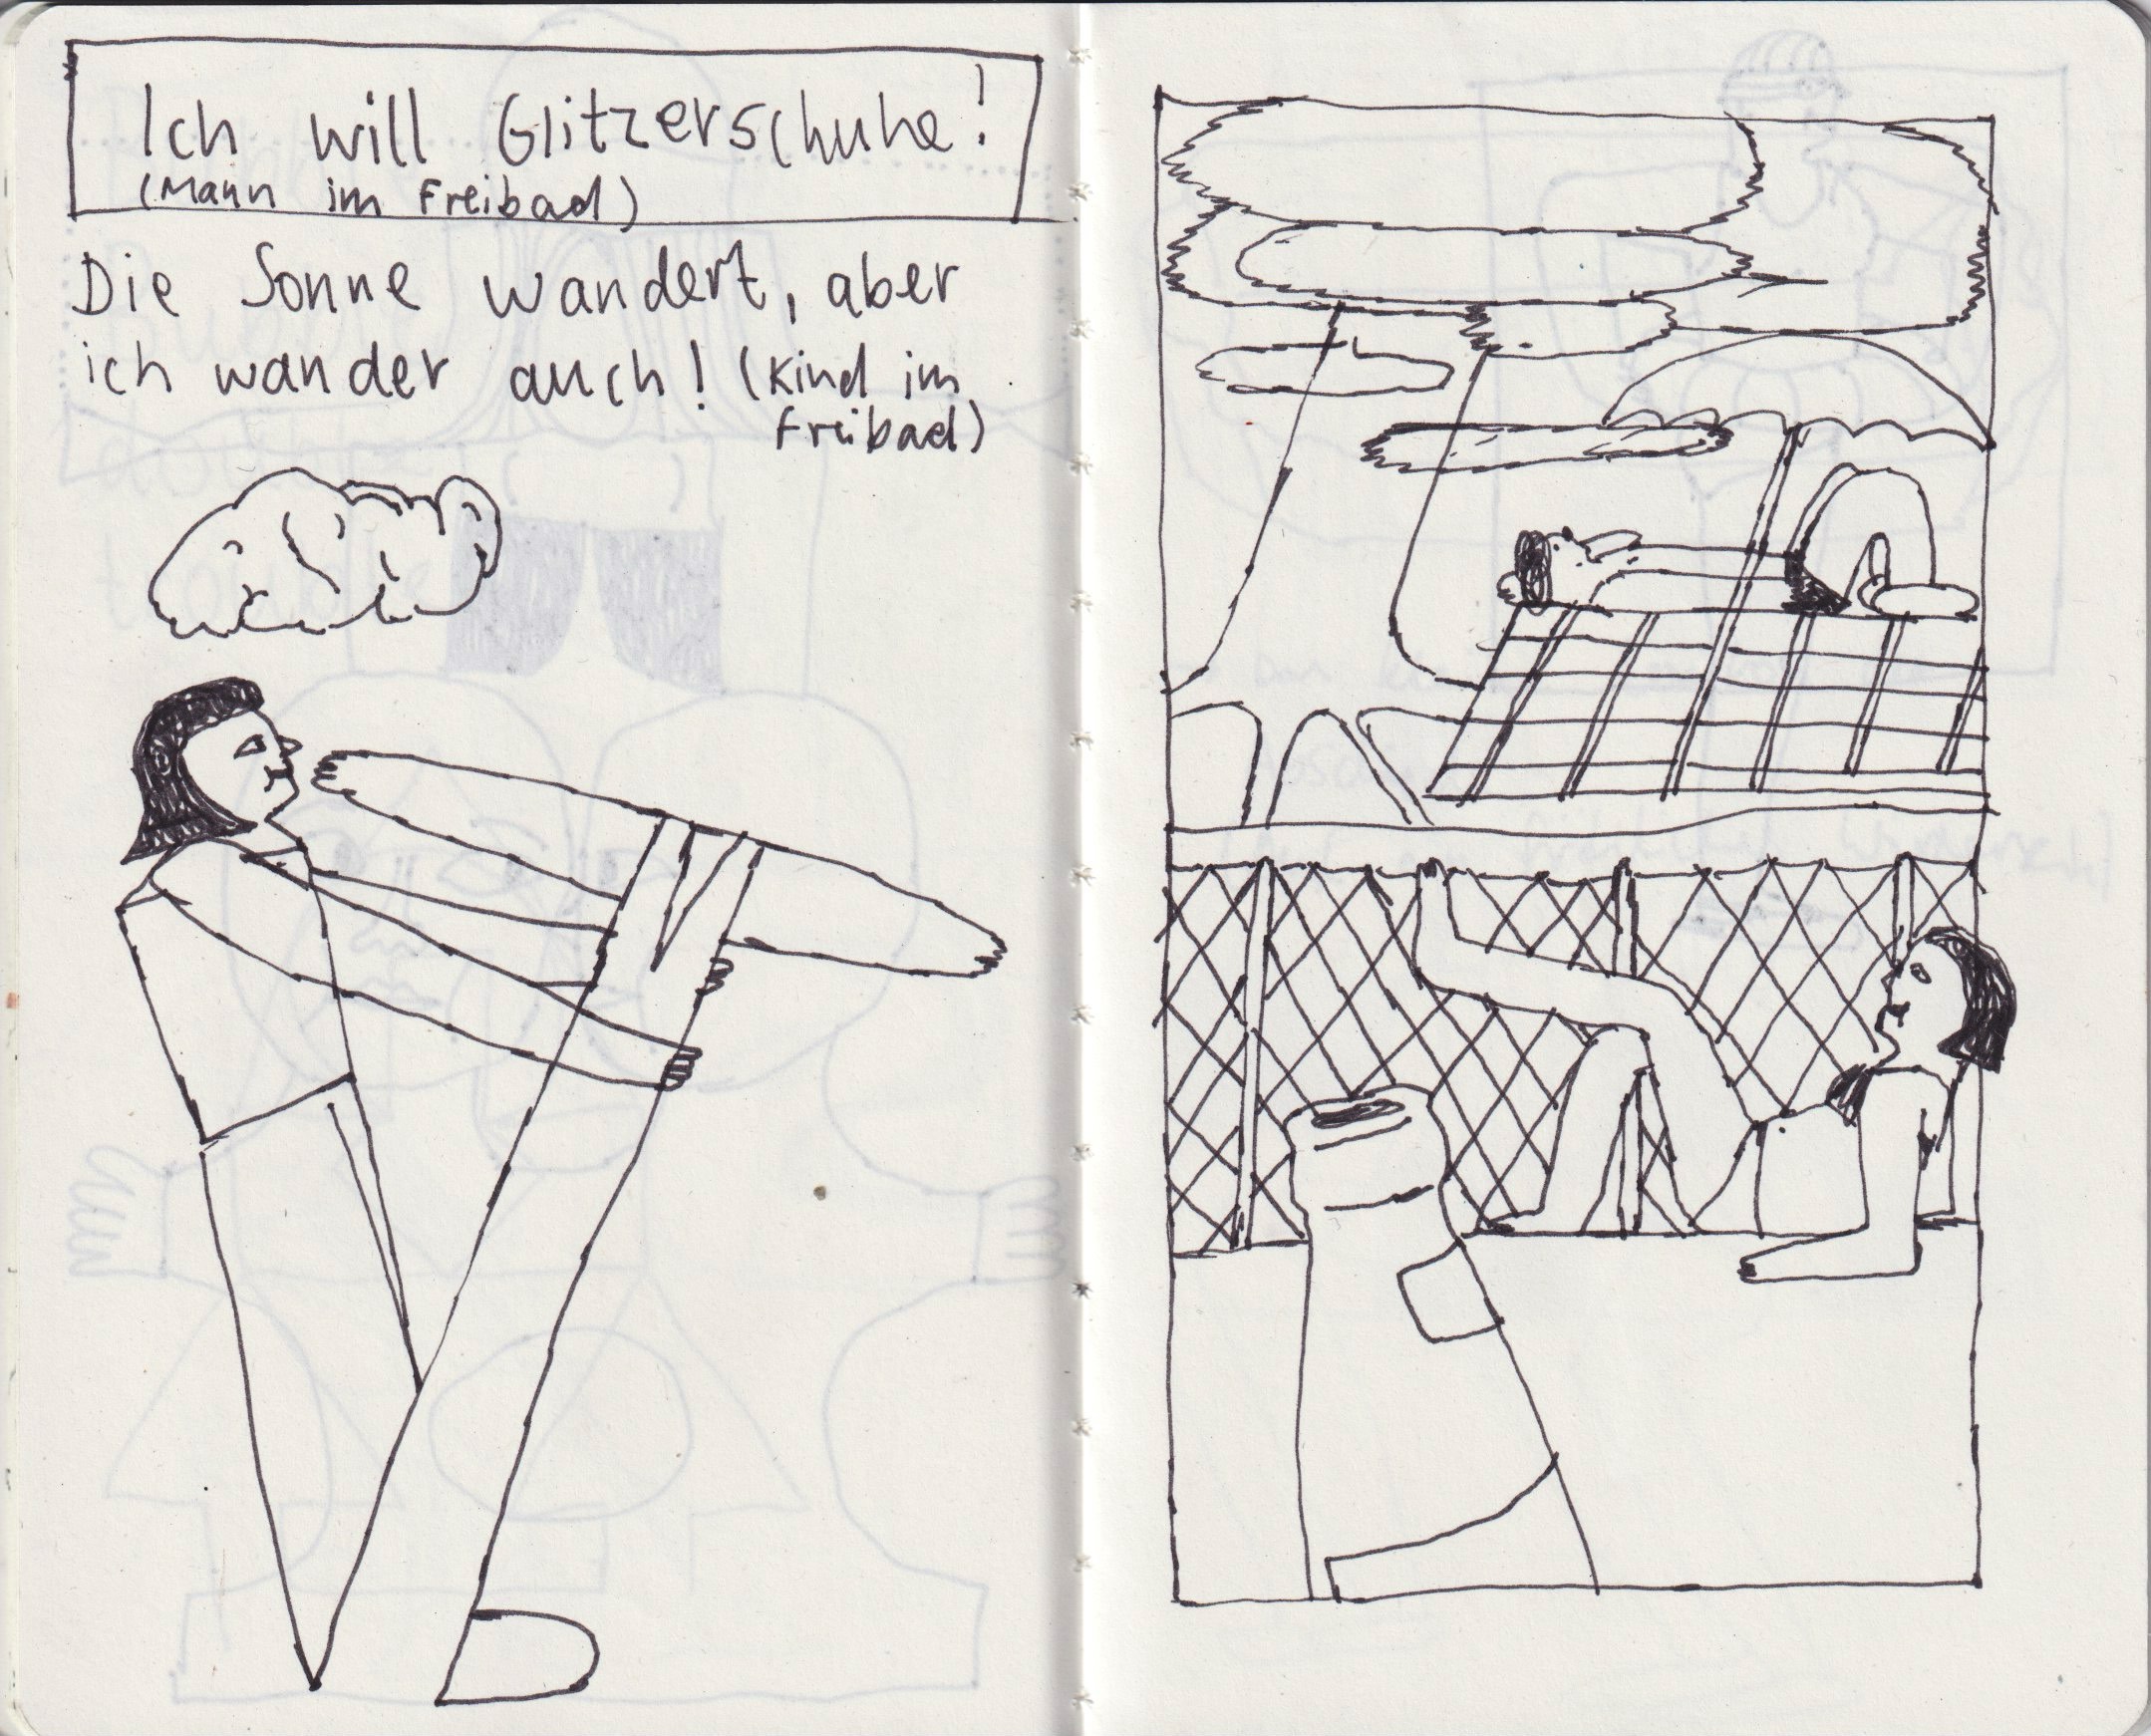 Ich will Glitzerschuhe!
(Mann im Freibad)
Die Sonne wandert, aber
ich wander auch! (Kind im
Freibad)